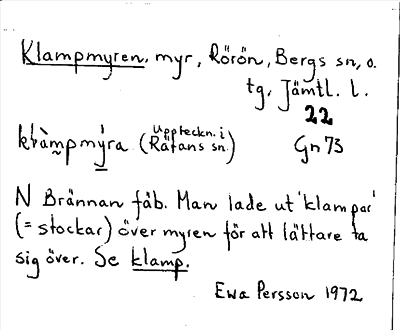 Klampmyren, myr, Rörön, Bergs sn, o.
tg, Jämtl. l.
22
klàmpmýra (Uppteckn. i Rätans sn.) Gn 73
N Brännan fäb. Man lade ut 'klampar'
(= stockar) över myren för att lättare ta
sig över. Se klamp.
Ewa Persson 1972